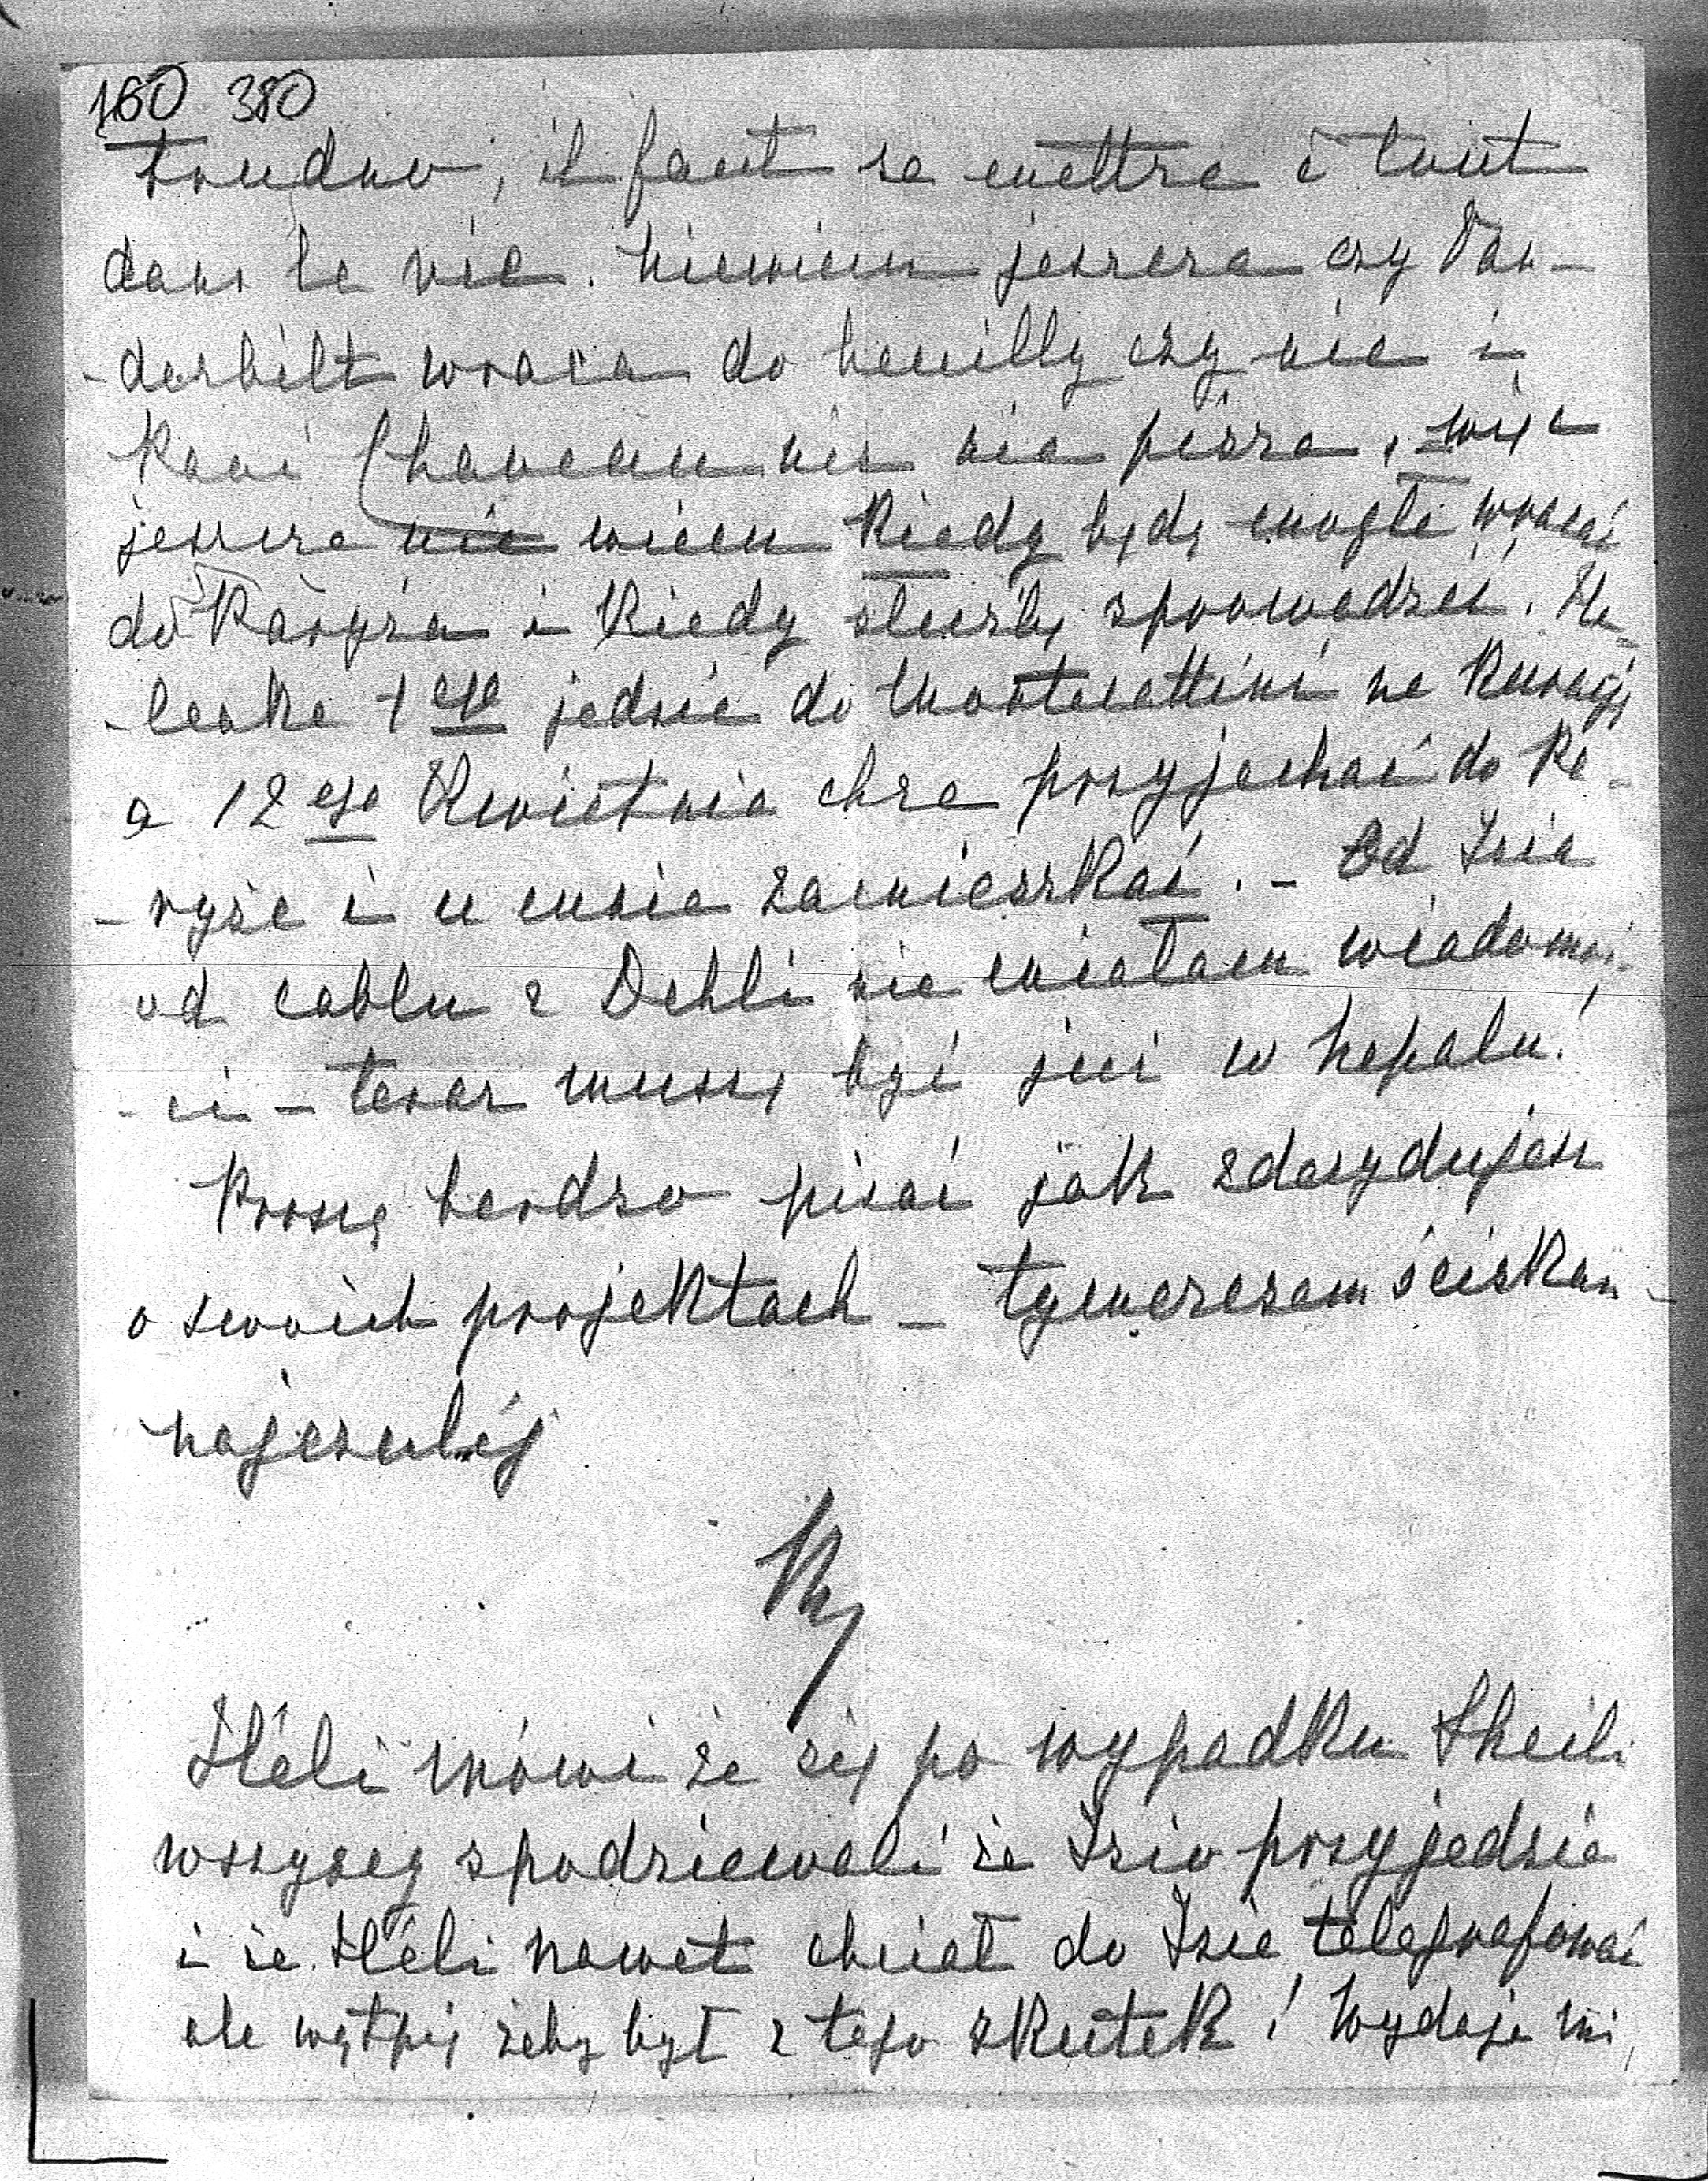 160 380
trudno, il faut se mettre à tout
dans la vie. Niewiem jeszcze czy Van-
-derbilt wraca do Neuilly czy nie i
Pani Chaveau nic nie pisze, więc
jeszcze nie wiem kiedy będę mogła wracać
do Paryża i kiedy służbę sprowadzić. He-
-lenka 1ego jedzie do Montecattini na kurację
a 12ego Kwietnia chce przyjechać do Pa-
-ryża i u mnie zamieszkać. - Od Izia
od cablu z Dehli nie miałam wiadomoś-
-ci - teraz muszą być już w Nepalu!
Proszę bardzo pisać jak zdecydujesz
o swoich projektach - tymczasem ściskam
najczulej
Héli mówi że się po wypadku Sheili
wszyscy spodziewali że Izio przyjedzie
i że Héli nawet chciał do Izia telegrafować
ale wątpię żeby był z tego skutek! Wydaje mi